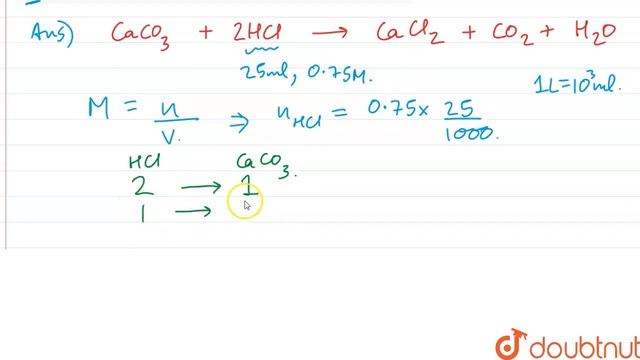 Ans) CaCO₃ + 2HCl → CaCl₂ + CO₂ + H₂O
25ml, 0.75M.
1L = 10³ml.
M = n/V. ⇒ nHCl = 0.75 × 25/1000.
HCl CaCO₃.
2 → 1
1 →
doubtnut